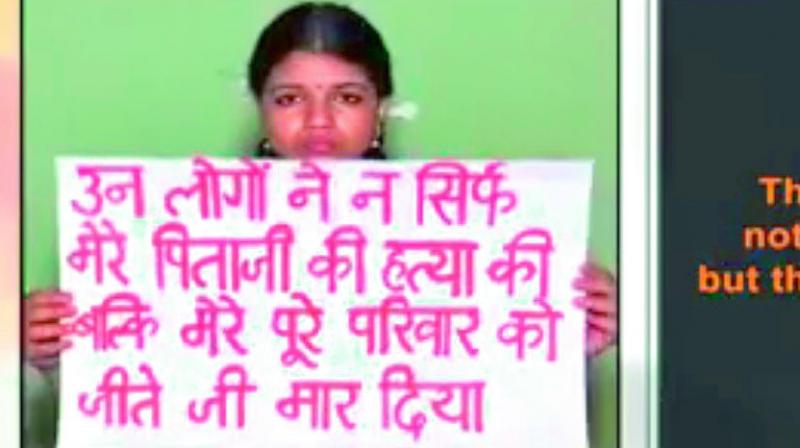 उन लोगों ने न सिर्फ
मेरे पिताजी की हत्या की
बल्कि मेरे पूरे परिवार को
जीते जी मार दिया
Th
not
but th